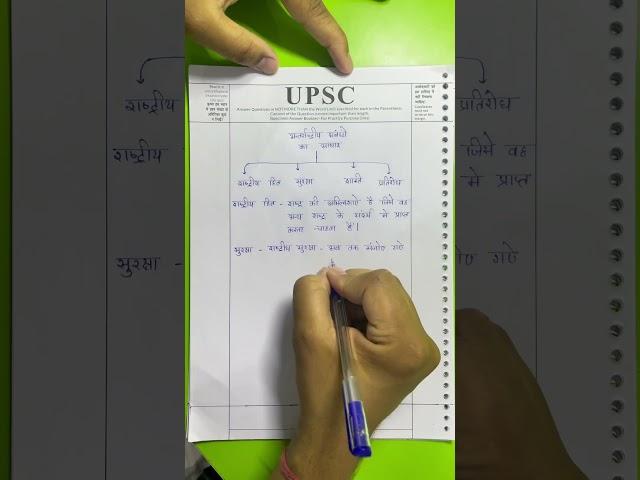 UPSC
Answer Questions in NOT MORE THAN the Word Limit specified for each in the Parenthesis.
Content of the Question is more important than length.
Specimen Answer Booklet - For Practice Purpose Only)
अन्तर्राष्ट्रीय संबंधो
का आधार
राष्ट्रीय हित सुरक्षा शांति प्रतिरोध
राष्ट्रीय हित - राष्ट्र की अभिलाषाऐ है जिसे वह
अन्य राष्ट्र के संदर्भ मे प्राप्त
करना चाहता है।
सुरक्षा - राष्ट्रीय सुरक्षा - अब तक संजोए गऐ